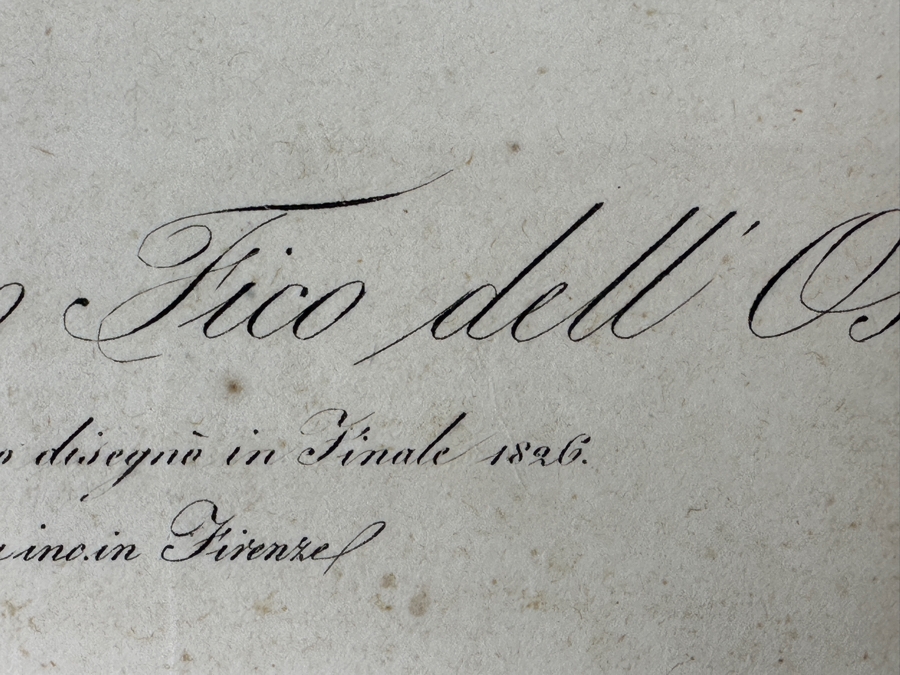 Fico dell' Os
disegnò in Finale 1826.
inc. in Firenze